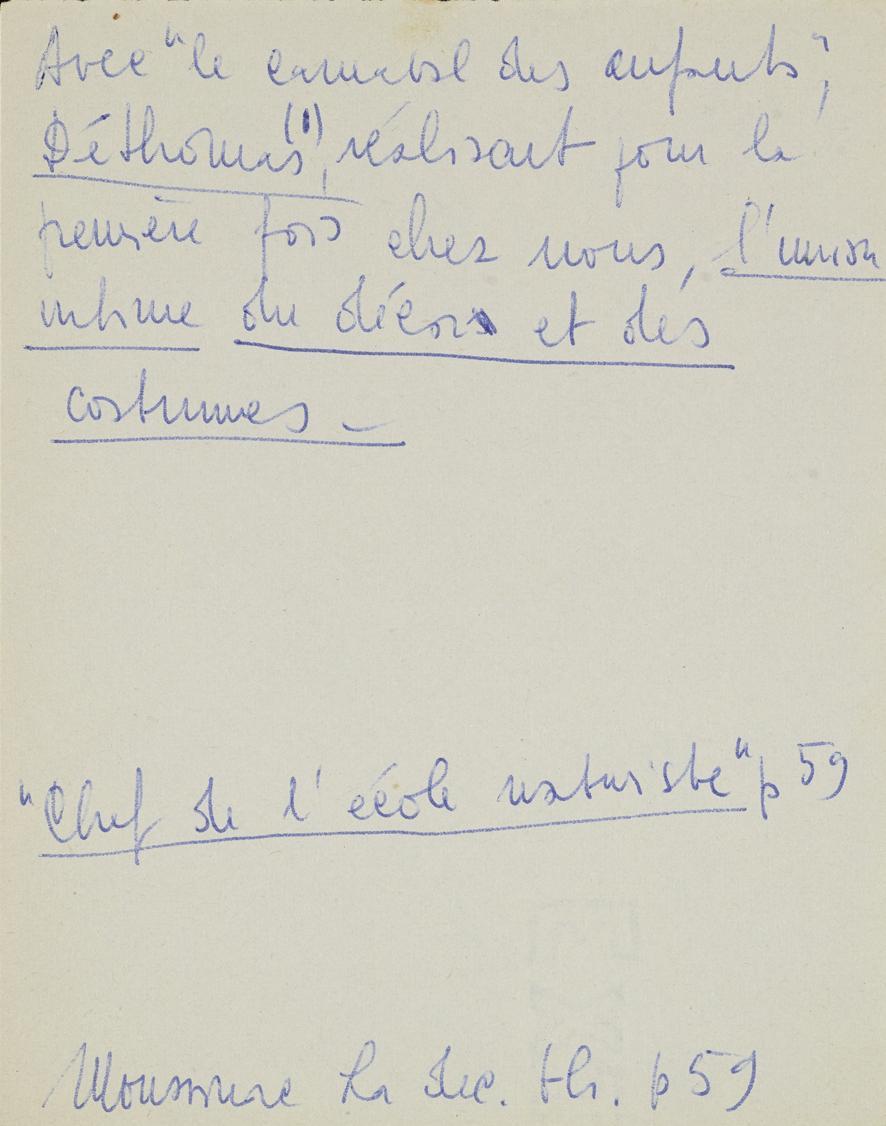 Avec "le carnaval des enfants",
Déthomas(1), réalisant pour la
première fois chez nous, l'union
intime du décor et des
costumes –
"Chef de l'école naturiste" p 59
Moussinac La déc. th. p 59